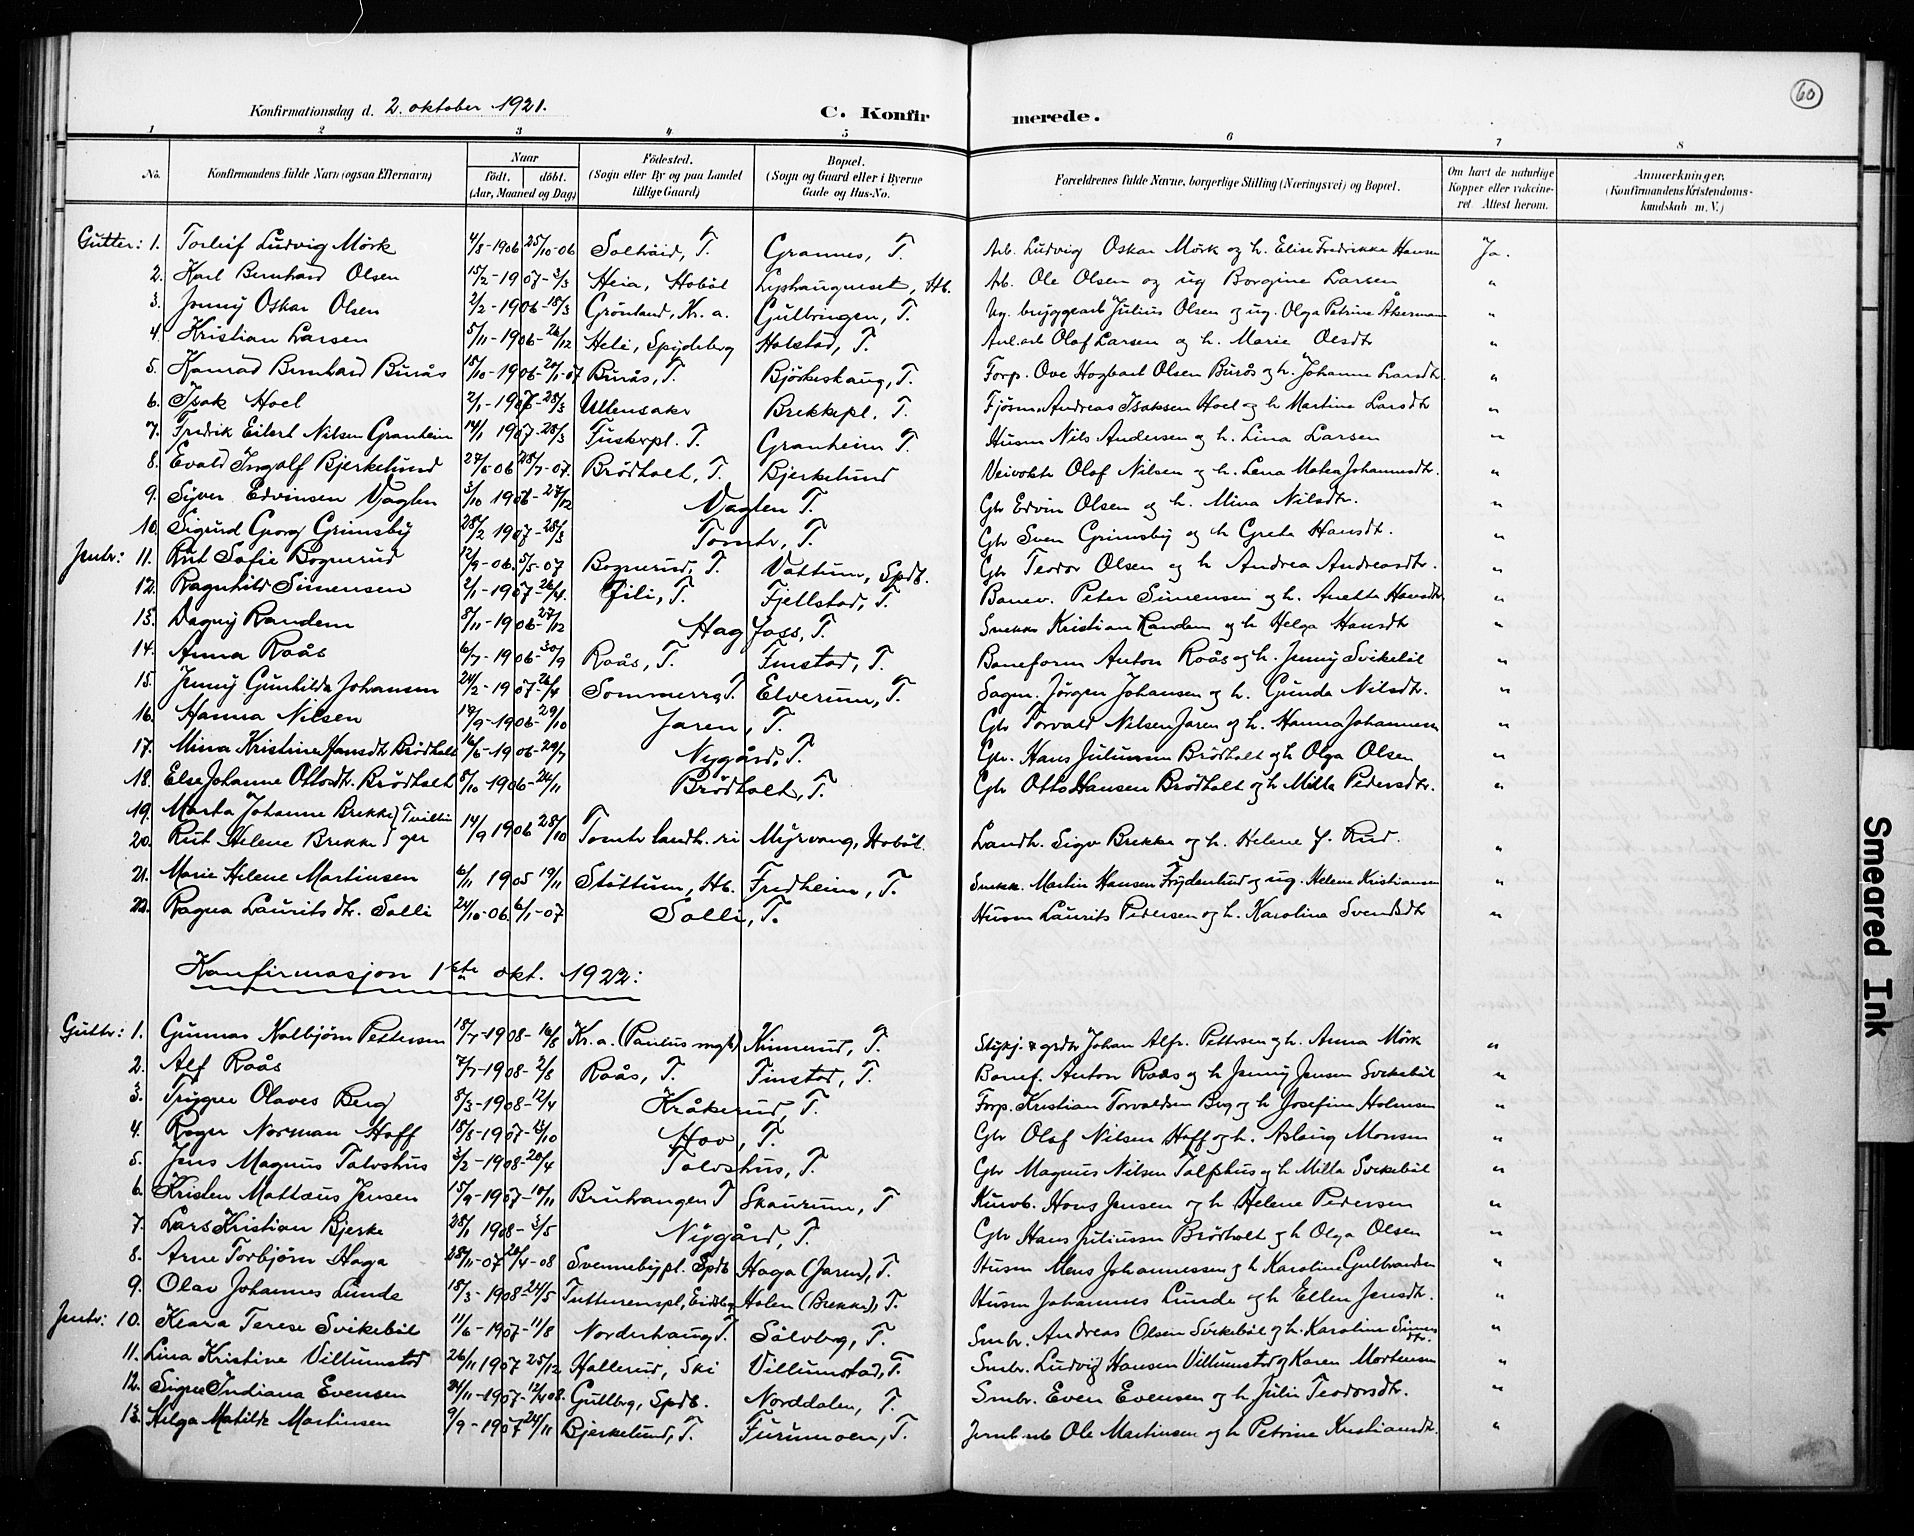 60
Konfirmationsdag d. 2. oktober 1921. C. Konfirmerede.
1 2 3 4 5 6 7 8
No. Konfirmandens fulde Navn (ogsaa Efternavn) Naar født. døbt. (Aar, Maaned og Dag) Fødested. (Sogn eller By og paa Landet tillige Gaard) Bopæl. (Sogn og Gaard eller i Byerne Gade og Hus-No. Forældrenes fulde Navne, borgerlige Stilling (Næringsvei) og Bopæl. Om havt de naturlige Kopper eller vakcineret. Attest herom. Anmærkninger. (Konfirmandens Kristendomskundskab m. V.)
Gutter: 1. Torleif Ludvig Mørk 4/8-1906 25/10-06 Solhøid, T. Grannes, T. Arb. Ludvig Oskar Mørk og h. Elise Fredrikke Hansen Ja.
2. Karl Bernhard Olsen 15/2-1907-3/3 Heia, Hobøl Arb. Ole Olsen og ug Borgine Larsen "
3. Jenny Oskar Olsen 2/2-1906-18/3 Grønland, Kr.a. Gulbringen, T. Ug. bryggearb Julius Olsen og ug. Olga Petrine Åkerman "
4. Kristian Larsen 5/11-1906-26/12 Heli, Spydeberg Holstad, T. Anl.arb Olaf Larsen og h. Marie Olsdtr "
5. Konrad Bernhard Burås 15/10-1906-20/1-07 Burås, T. Bjørkeskaug, T. Forp. Ove Hagbart Olsen Burås og h. Johanne Larsdtr. "
6. Isak Hoel 2/1-1907-28/3 Ullensaker Brekkepl. T. Fjøsm. Andreas Isaksen Hoel og h Martine Larsdtr "
7. Fredrik Eilert Nilsen Granheim 14/1 1907-28/3 Tuskerpl. T. Granheim T. Husm Nils Andersen og h. Lina Larsen "
8. Evald Ingolf Bjerkelund 27/5-06 28/7-07. Brødholt, T. Bjerkelund Veivokter Olaf Nilsen og h. Lena Matea Johannesdtr. "
9. Syver Edvinsen Vaglen 3/10 1906-27/12 Vaglen T. Gbr Edvin Olsen og h. Mina Nilsdtr. "
10. Sigurd Georg Grimsby 28/2 1907-28/3 Tomter, T. Gbr Sven Grimsby og h Greta Hansdtr. "
Jenter: 11. Rut Sofie Bognerud 12/9-06. 5/5-07 Bognerud, T. Våttum, Spdb. Gbr Teodor Olsen og h Andrea Andreasdtr. "
12. Ragnhild Simensen 2/1-1907-26/4. Fili, T. Fjellstad, T. Banev. Peter Simensen og h. Anette Hansdtr "
13. Dagny Randem 8/11-1906-27/12 Hagfoss, T. Snekker Kristian Randem og h Helga Hansdtr "
14. Anna Raås 6/7-1906-30/9 Raås, T. Finstad, T. Baneform Anton Raås og h. Jenny Svikebøl "
15. Jenny Gunhilda Johansen 24/2-1907-26/4 Sommerro, T. Elverum, T. Sagm. Jørgen Johansen og h. Gunda Nilsdtr. "
16. Hanna Nilsen 19/9-1906-29/10 Jaren, T. Gbr Torvald Nilsen Jaren og h. Hanna Johannesen "
17. Mina Kristine Hansdtr Brødholt 16/6-1906-29/7 Nygård, T. Gbr. Hans Juliussen Brødholt og h Olga Olsen "
18. Else Johanne Ottosdtr. Brødholt 8/10-1906-24/11 Brødholt, T. Gbr Otto Hansen Brødholt og h Milla Pedersdtr. "
19. Marta Johanne Brekke } Tvillin
20. Rut Helene Brekke } ger 14/9 1906 28/10 Tomter landh.ri Myrvang, Hobøl. Landh. Sigv Brekke og h. Helene f. Rud. "
21. Marie Helene Martinsen 6/11 1905 19/11 Støttum, Hb. Fredheim, T. Snekk. Martin Hansen Frydenlund og ug. Helene Kristiansen "
22. Ragna Lauritsdtr. Solli 24/10-06. 6/1-07 Solli, T. Husm Laurits Pedersen og h. Karoline Svendsdtr "
Konfirmasjon 1ste okt. 1922:
Gutter: 1. Gunnar Nalbjørn Pettersen 18/7-1908-16/8 Kr.a. (Paulus mgh) Kinnerud, T. Stykj. & grdbr Johan Alfr. Pettersen og h. Anna Mørk "
2. Alf Raås 7/7-1908-2/8 Raås, T. Finstad, T. Banef. Anton Raås og h Jenny Jensen Svikebøl "
3. Trygve Olaves Berg 8/3-1908-12/4 Kråkerud, T. Forp. Kristian Torvaldsen Berg og h Josefine Holmsen "
4. Roger Norman Hoff 18/8-1907-13/10 Hov, T. Gbr Olaf Nilsen Hoff og h. Aslaug Monsen "
5. Jens Magnus Talvshus 3/2-1908-20/4 Talvshus, T. Gbr Magnus Nilsen Talfshus og h Milla Svikebøl "
6. Kristen Mattæus Jensen 15/9-1907-10/11 Bruhaugen T Skaurum, T Kurvb. Hans Jensen og h Helene Pedersen "
7. Lars Kristian Bjerke 28/1 1908-3/5 Nygård, T. Gbr Hans Juliussen Brødholt og h Olga Olsen "
8. Arne Torbjørn Haga 28/11-07 20/4-08 Svennebypl. Spdb Haga (Jaren), T. Husm Mens Johannessen og h Karoline Gulbrandsen "
9. Olav Johannes Lunde 18/3-1908-24/5 Tutturenspl, Eidsbg Holen (Brekke), T. Husm Johannes Lunde og h Ellen Jensdtr. "
Jenter: 10. Klara Terese Svikebøl 11/6-1907-11/8 Norderhaug T. Sølvberg, T. Smbr. Andreas Olsen Svikebøl og h. Karoline Simensdtr. "
11. Lina Kristine Villumstad 26/11 1907 25/12 Hallerud, Ski Villumstad, T. Smbr. Ludvig Hansen Villumstad og Karen Mortensen "
12. Signe Indiana Evensen 24/11-1907-12/4 08. Gulberg, Spdb. Norddalen, T. Smbr. Even Evensen og h Julie Teodorsdtr. "
13. Helga Matilde Martinsen 9/9-1907 24/11 Bjerkelund, T. Furumoen, T. Jernb.arb Ole Martinsen og h Petrine Kristiansdtr. "
Smeared Ink